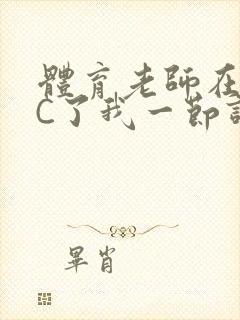 體育老師在
C了我一節
畢肖